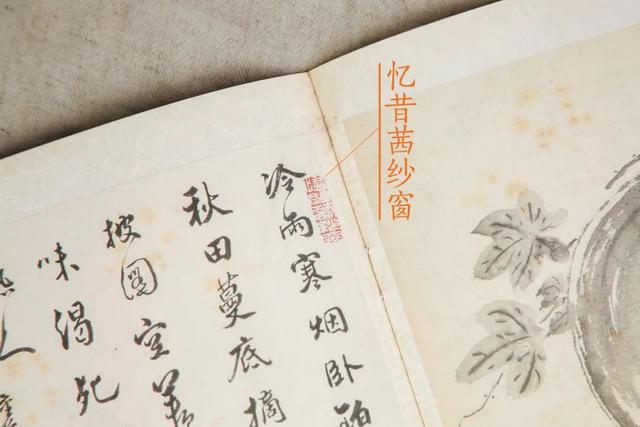 忆昔茜纱窗
冷雨寒烟卧
秋田蔓底摘
披圖空
味渴死
人